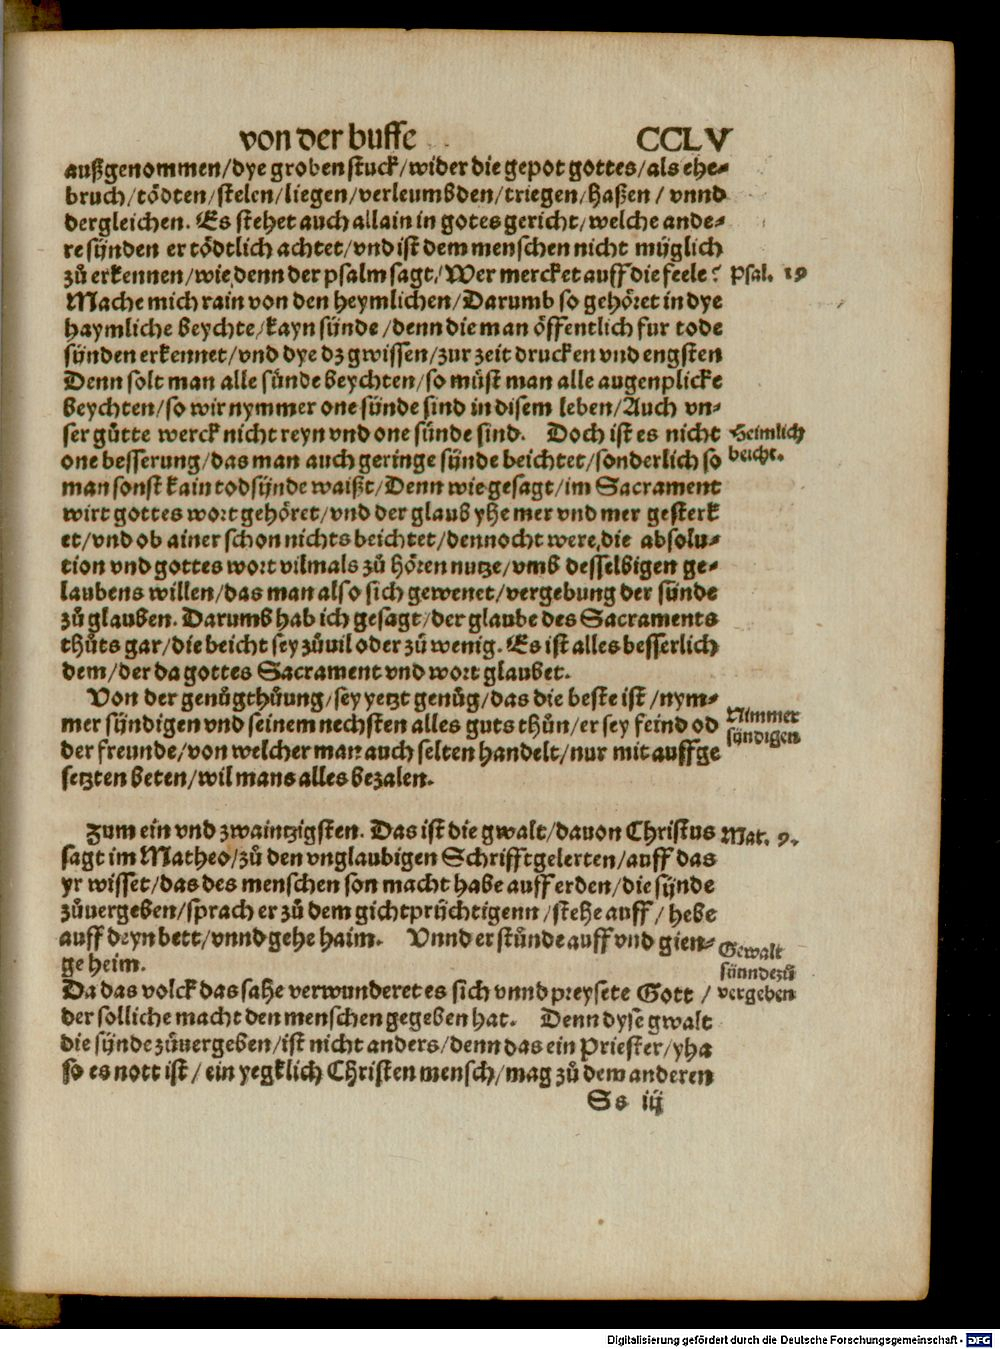 von der busse CCLV
außgenommen/dye groben stuck/wider die gepot gottes/als ehe-
bruch/tödten/stelen/liegen/verleumbden/triegen/haßen/vnnd
dergleichen. Es stehet auch allain in gotes gericht/welche ande-
re sünden er tödtlich achtet/vnd ist dem menschen nicht müglich
zů erkennen/wie denn der psalm sagt/Wer mercket auff die feele? Psal. 19
Mache mich rain von den heymlichen/Darumb so gehöret in dye
haymliche beychte/kayn sünde/denn die man öffentlich fur tode
sünden erkennet/vnd dye dz gwissen/zur zeit drucken vnd engsten
Denn solt man alle sünde beychten/so můst man alle augenplicke
beychten/so wir nymmer one sünde sind in disem leben/Auch vn-
ser gůtte werck nicht reyn vnd one sünde sind. Doch ist es nicht Heimlich
one besserung/das man auch geringe sünde beichtet/sonderlich so beicht.
man sonst kain todsünde waißt/Denn wie gesagt/im Sacrament
wirt gottes wort gehöret/vnd der glaub yhe mer vnd mer gesterk
et/vnd ob ainer schon nichts beichtet/dennocht were die absolu-
tion vnd gottes wort vilmals zů hören nutze/vmb desselbigen ge-
laubens willen/das man also sich gewenet/vergebung der sünde
zů glauben. Darumb hab ich gesagt/der glaube des Sacraments
thůts gar/die beicht sey zůuil oder zů wenig. Es ist alles besserlich
dem/der da gottes Sacrament vnd wort glaubet.
Von der genůgthůung/sey yetzt genůg/das die beste ist/nym-
mer sündigen vnd seinem nechsten alles guts thůn/er sey feind od Nimmer
der freunde/von welcher man auch selten handelt/nur mit auffge sündigen
setzten beten/wil mans alles bezalen.
Zum ein vnd zwaintzigsten. Das ist die gwalt/dauon Christus Mat. 9.
sagt im Matheo/zů den vnglaubigen Schrifftgelerten/auff das
yr wisset/das des menschen son macht habe auff erden/die sünde
zůuergeben/sprach er zů dem gichtprüchtigenn/stehe auff/hebe
auff deyn bett/vnnd gehe haim. Vnnd er stůnde auff vnd gien- Gewalt
ge heim. sünndezů
Da das volck das sahe verwunderet es sich vnnd preysete Gott/ vergeben
der solliche macht den menschen gegeben hat. Denn dyse gwalt
die sünde zůuergeben/ist nicht anders/denn das ein Priester/yha
so es nott ist/ein yegklich Christen mensch/mag zů dem anderen
Ss iij
Digitalisierung gefördert durch die Deutsche Forschungsgemeinschaft - DFG